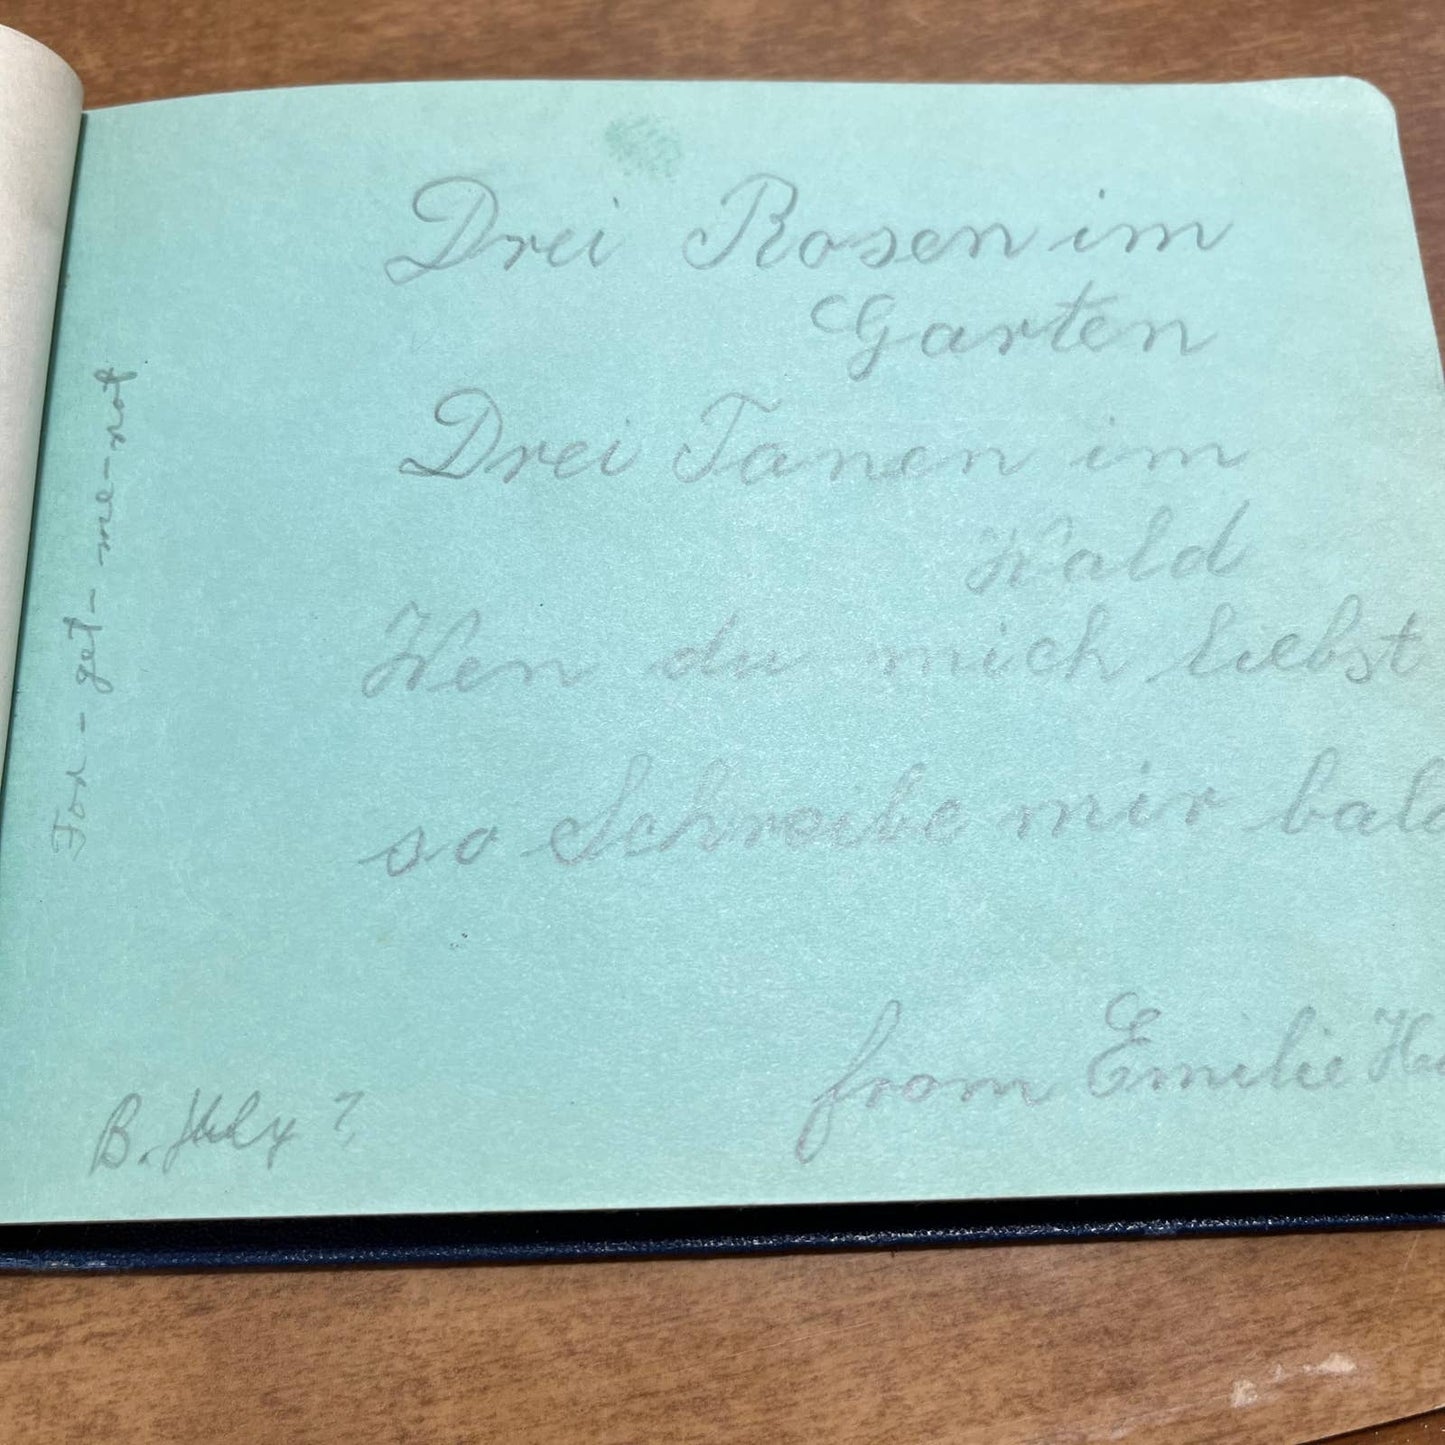 Drei Rosen im
Garten
Drei Tanen im
Wald
Wen du mich liebst
so Schreibe mir bald
from Emilie
B. July 7.
For-get-me-not